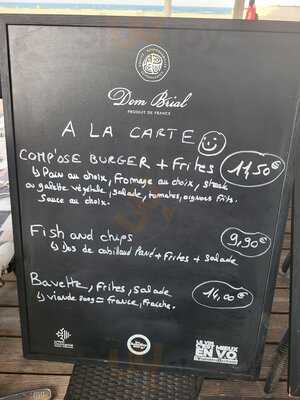 Dom Brial
PRODUIT DE FRANCE
A LA CARTE
COMPOSE BURGER + Frites 11,50€
↳ Pain au choix, Fromage au choix, steak
ou galette végétale, salade, tomates, oignons frits.
Sauce au choix.
Fish and chips 9,90€
↳ Dos de cabillaud Pané + Frites + salade
Bavette, Frites, Salade 14,00€
↳ viande 200g = France, fraîche.
LA VIE
C'EST MIEUX
EN VO